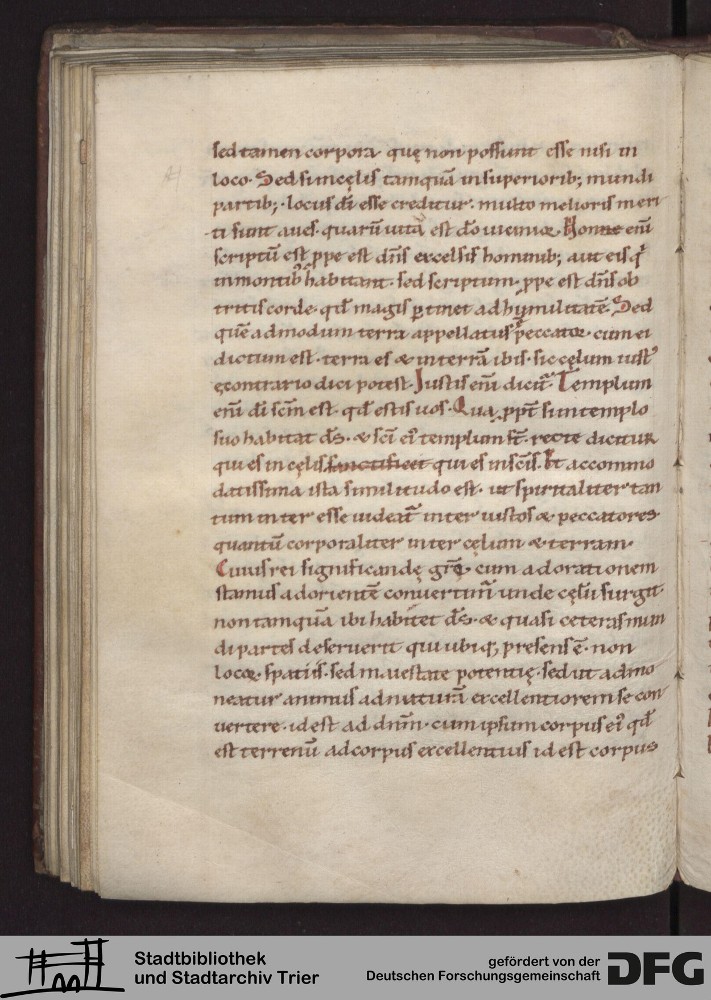 sed tamen corpora quę non possunt esse nisi in
loco· Sed si in cęlis tamquā in superiorib; mundi
partib; locus dī esse creditur· multo melioris meri
ti sunt aues· quarū uita est dō uicinior· Non enī
scriptū est ꝓpe est dn̄s excelsis hominib; aut eis q̇
in montibꝰ habitant· sed scriptum· ꝓpe est dn̄s ob
tritis corde· qd̄ magis ꝑtinet ad hymilitatē· Sed
quēadmodum terra appellatus peccator cum ei
dictum est· terra es & in terrā ibis· sic cęlum iustꝰ
ęcontrario dici potest· Iustis enī dicit̄· Templum
enī dī scm̄ est qd̄ estis uos· Qua ꝓpt̄ si in templo
suo habitat ds̄· & scī eiꝰ templum st̄· recte dicitur
qui es in cęlis qui es in scīs· Et accommo
datissima ista similitudo est· ut spiritaliter tan
tum inter esse uideat̄ inter iustos & peccatores
quantū corporaliter inter cęlum & terram·
Cuius rei significandę grā· cum ad orationem
stamus ad orientē conuertimur unde cęlū surgit·
non tamquā ibi habitet ds̄· & quasi ceteras mun
di partes deseruerit qui ubiq; presens ē· non
locoꝝ spatiis· sed maiestate potentię· sed ut admo
neatur animus ad naturā excellentiorem se con
uertere· id est ad dnm̄· cum ipsum corpus eiꝰ qd̄
est terrenū ad corpus excellentius id est corpus
Stadtbibliothek
und Stadtarchiv Trier
gefördert von der
Deutschen Forschungsgemeinschaft
DFG